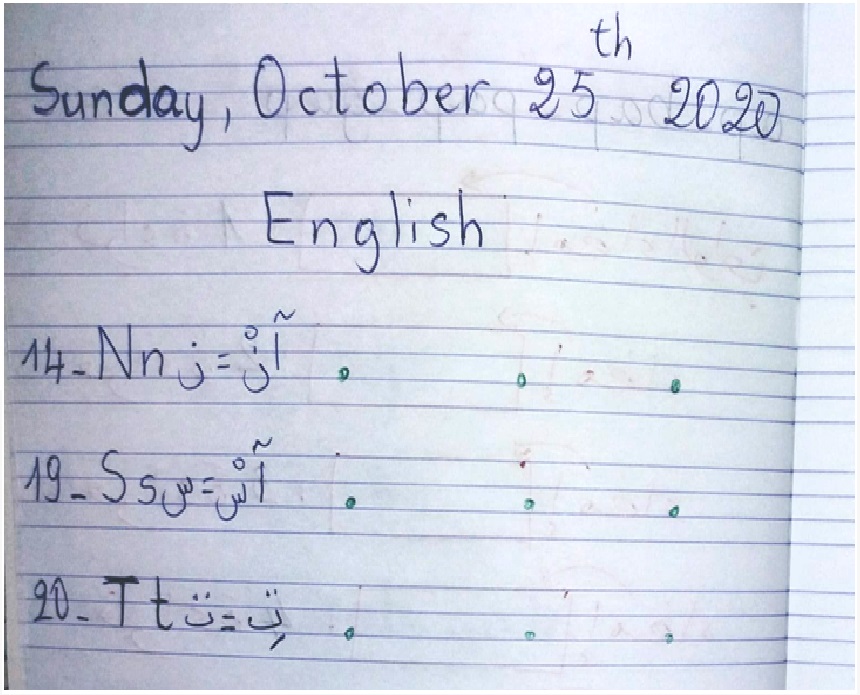 Sunday, October 25th 2020
English
14- Nn ن = آنْ
19- Ss س = آسْ
20- Tt ت = تِ